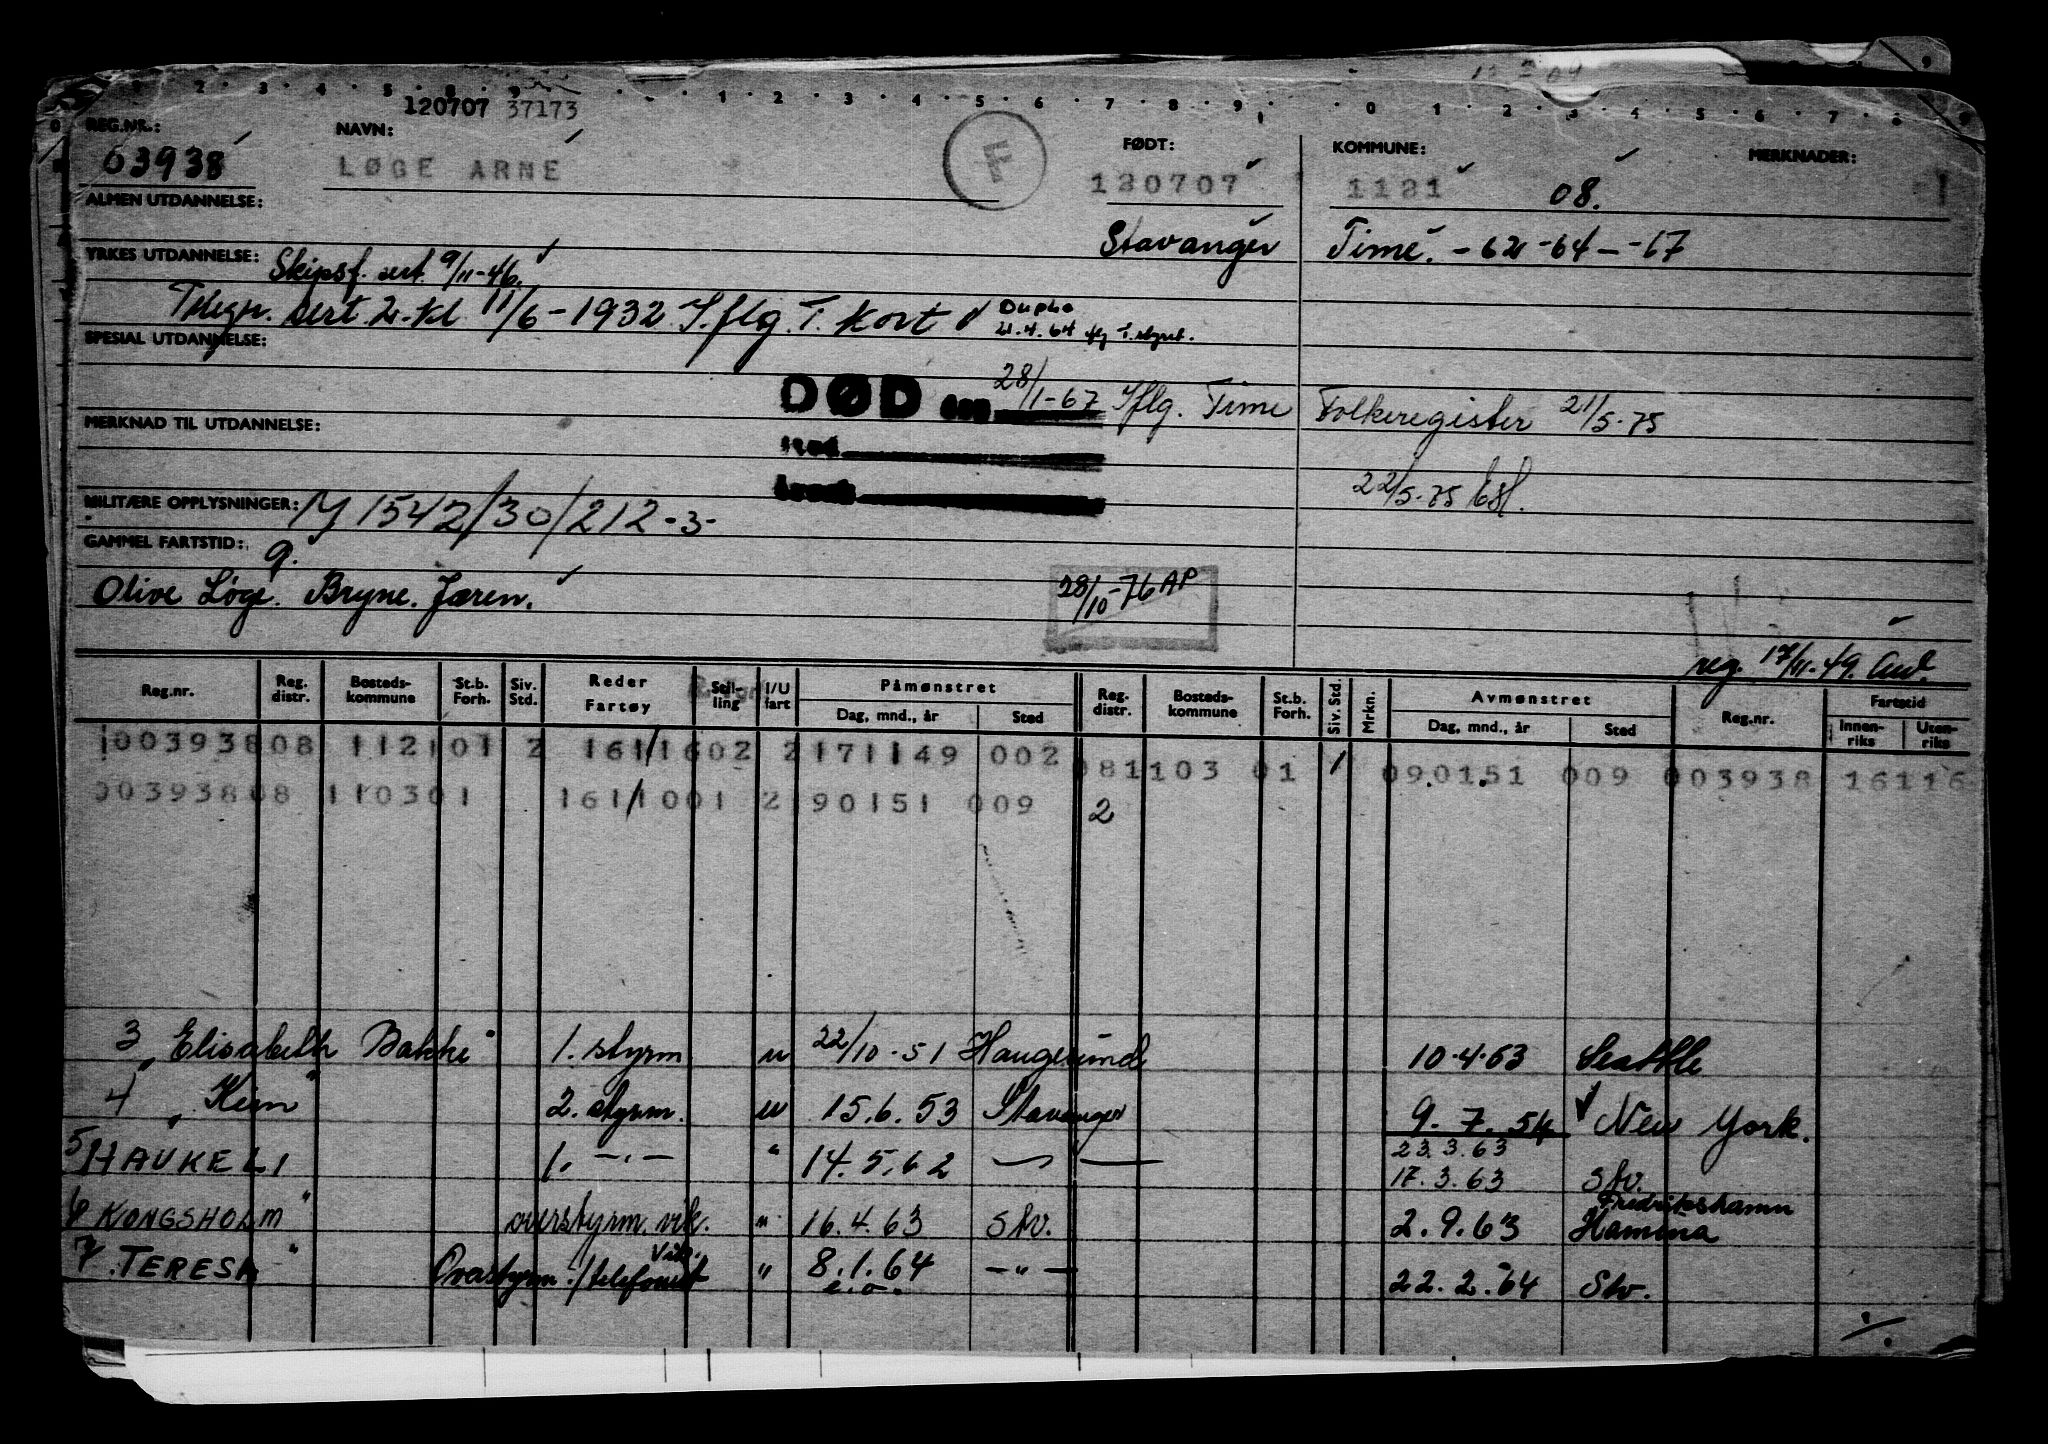 120707 37173
REG.NR.: NAVN: FØDT: KOMMUNE: MERKNADER:
63938 LØGE ARNE F 120707 1121 08.
ALMEN UTDANNELSE: Stavanger Time. - 62 - 64 - - 67
YRKES UTDANNELSE: Skipsf. sert. 9/11-46.
Telegr. sert. 2. kl. 11/6-1932 I.flg. T. kort
21.4.64 flg T. styret.
SPESIAL UTDANNELSE:
DØD den 28/1-67 Iflg. Time Folkeregister 21/5-75
MERKNAD TIL UTDANNELSE:
sted
22/5-75
MILITÆRE OPPLYSNINGER: M 1542/30/212-3-
GAMMEL FARTSTID: 9.
Olive Løge. Bryne. Jæren. 28/10-76 AP
reg. 17/11-49.
Reg.nr. Reg. distr. Bosteds-kommune St.b. Forh. Siv. Std. Reder Fartøy Stil-ling I/U fart Påmønstret Reg. distr. Bosteds-kommune St.b. Forh. Siv. Std. Mrkn. Avmønstret Reg.nr. Fartstid
Dag, mnd., år Sted Dag, mnd., år Sted Innen-riks Uten-riks
003938 08 1121 01 2 161/1602 2 171149 002 081103 01 1 090151 009 003938 16116
003938 08 1103 01 161/1001 2 190151 009 2
3 "Elisabeth Bakke" 1. styrm u 22/10-51 Haugesund 10.4.63 Seattle
4 "Kim" 2. styrm. u 15.6.53 Stavanger 9.7.54 New York.
23.3.63
5 HAUKELI 1. -"- " 14.5.62 17.3.63 Stv.
Fredrikshamn
6 KONGSHOLM" overstyrm. vik. " 16.4.63 Stv. 2.9.63 Hamina
7. TERESA" Overstyrm./telefonist Vik. " 8.1.64 -"- 22.2.64 Stv.
e.o.